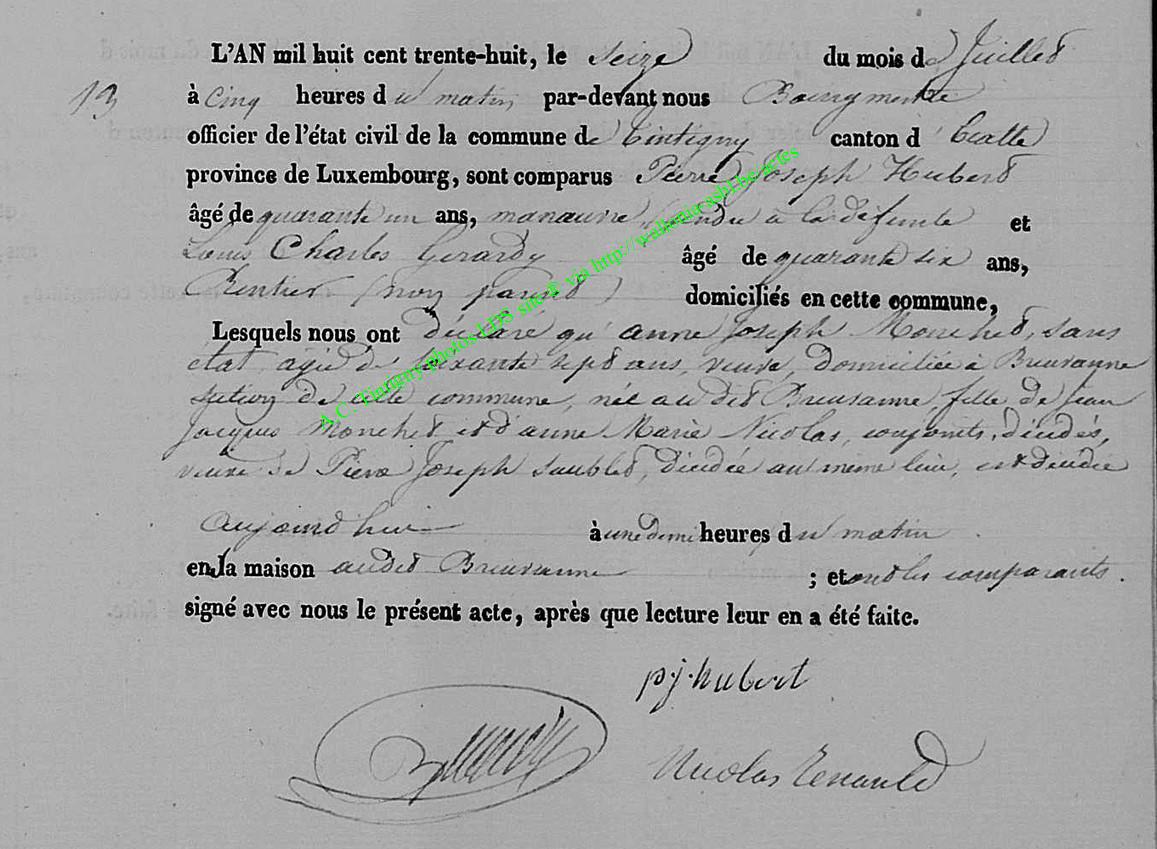 L'AN mil huit cent trente-huit, le Seize du mois de Juillet
13 à cinq heures du matin par-devant nous Bourgmestre
officier de l'état civil de la commune de Tintigny canton d' Etalle
province de Luxembourg, sont comparus Pierre Joseph Hubert
âgé de quarante un ans, manœuvre, gendre à la défunte et
Louis Charles Gerardy âgé de quarante six ans,
Rentier (non parent) domiciliés en cette commune,
Lesquels nous ont déclaré qu'anne Joseph Monchet, sans
état, agée de soixante sept ans, veuve, domiciliée à Breuvanne
section de cette commune, née au dit Breuvanne, fille de jean
Jacques Monchet et d'anne Marie Nicolas, conjoints, décédés,
veuve de Pierre Joseph Saublet, décédée au même lieu, est décédée
aujourd'hui à une demi heures du matin
en la maison audit Breuvanne ; et ont les comparants.
signé avec nous le présent acte, après que lecture leur en a été faite.
p.j. hubert
Nicolas Renauld
A.C. Tintigny photos LDS site ® via http://wallonia-asbl.be/actes